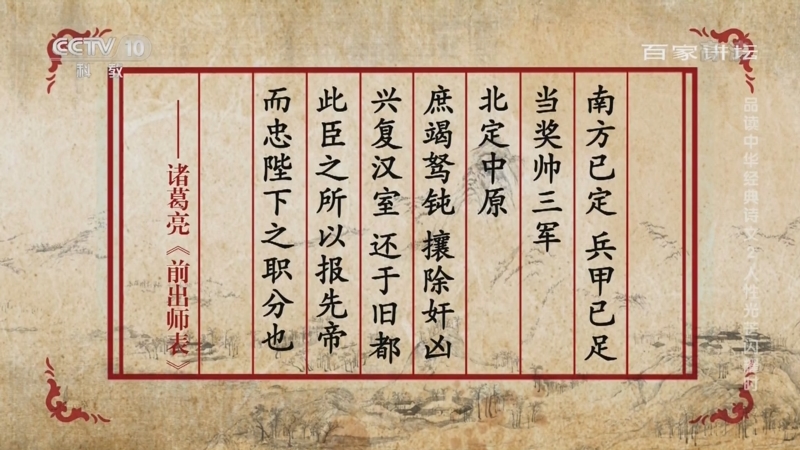 CCTV 10
科教
百家讲坛
南方已定 兵甲已足
当奖帅三军
北定中原
庶竭驽钝 攘除奸凶
兴复汉室 还于旧都
此臣之所以报先帝
而忠陛下之职分也
——诸葛亮《前出师表》
品读中华经典诗文2 人性光辉